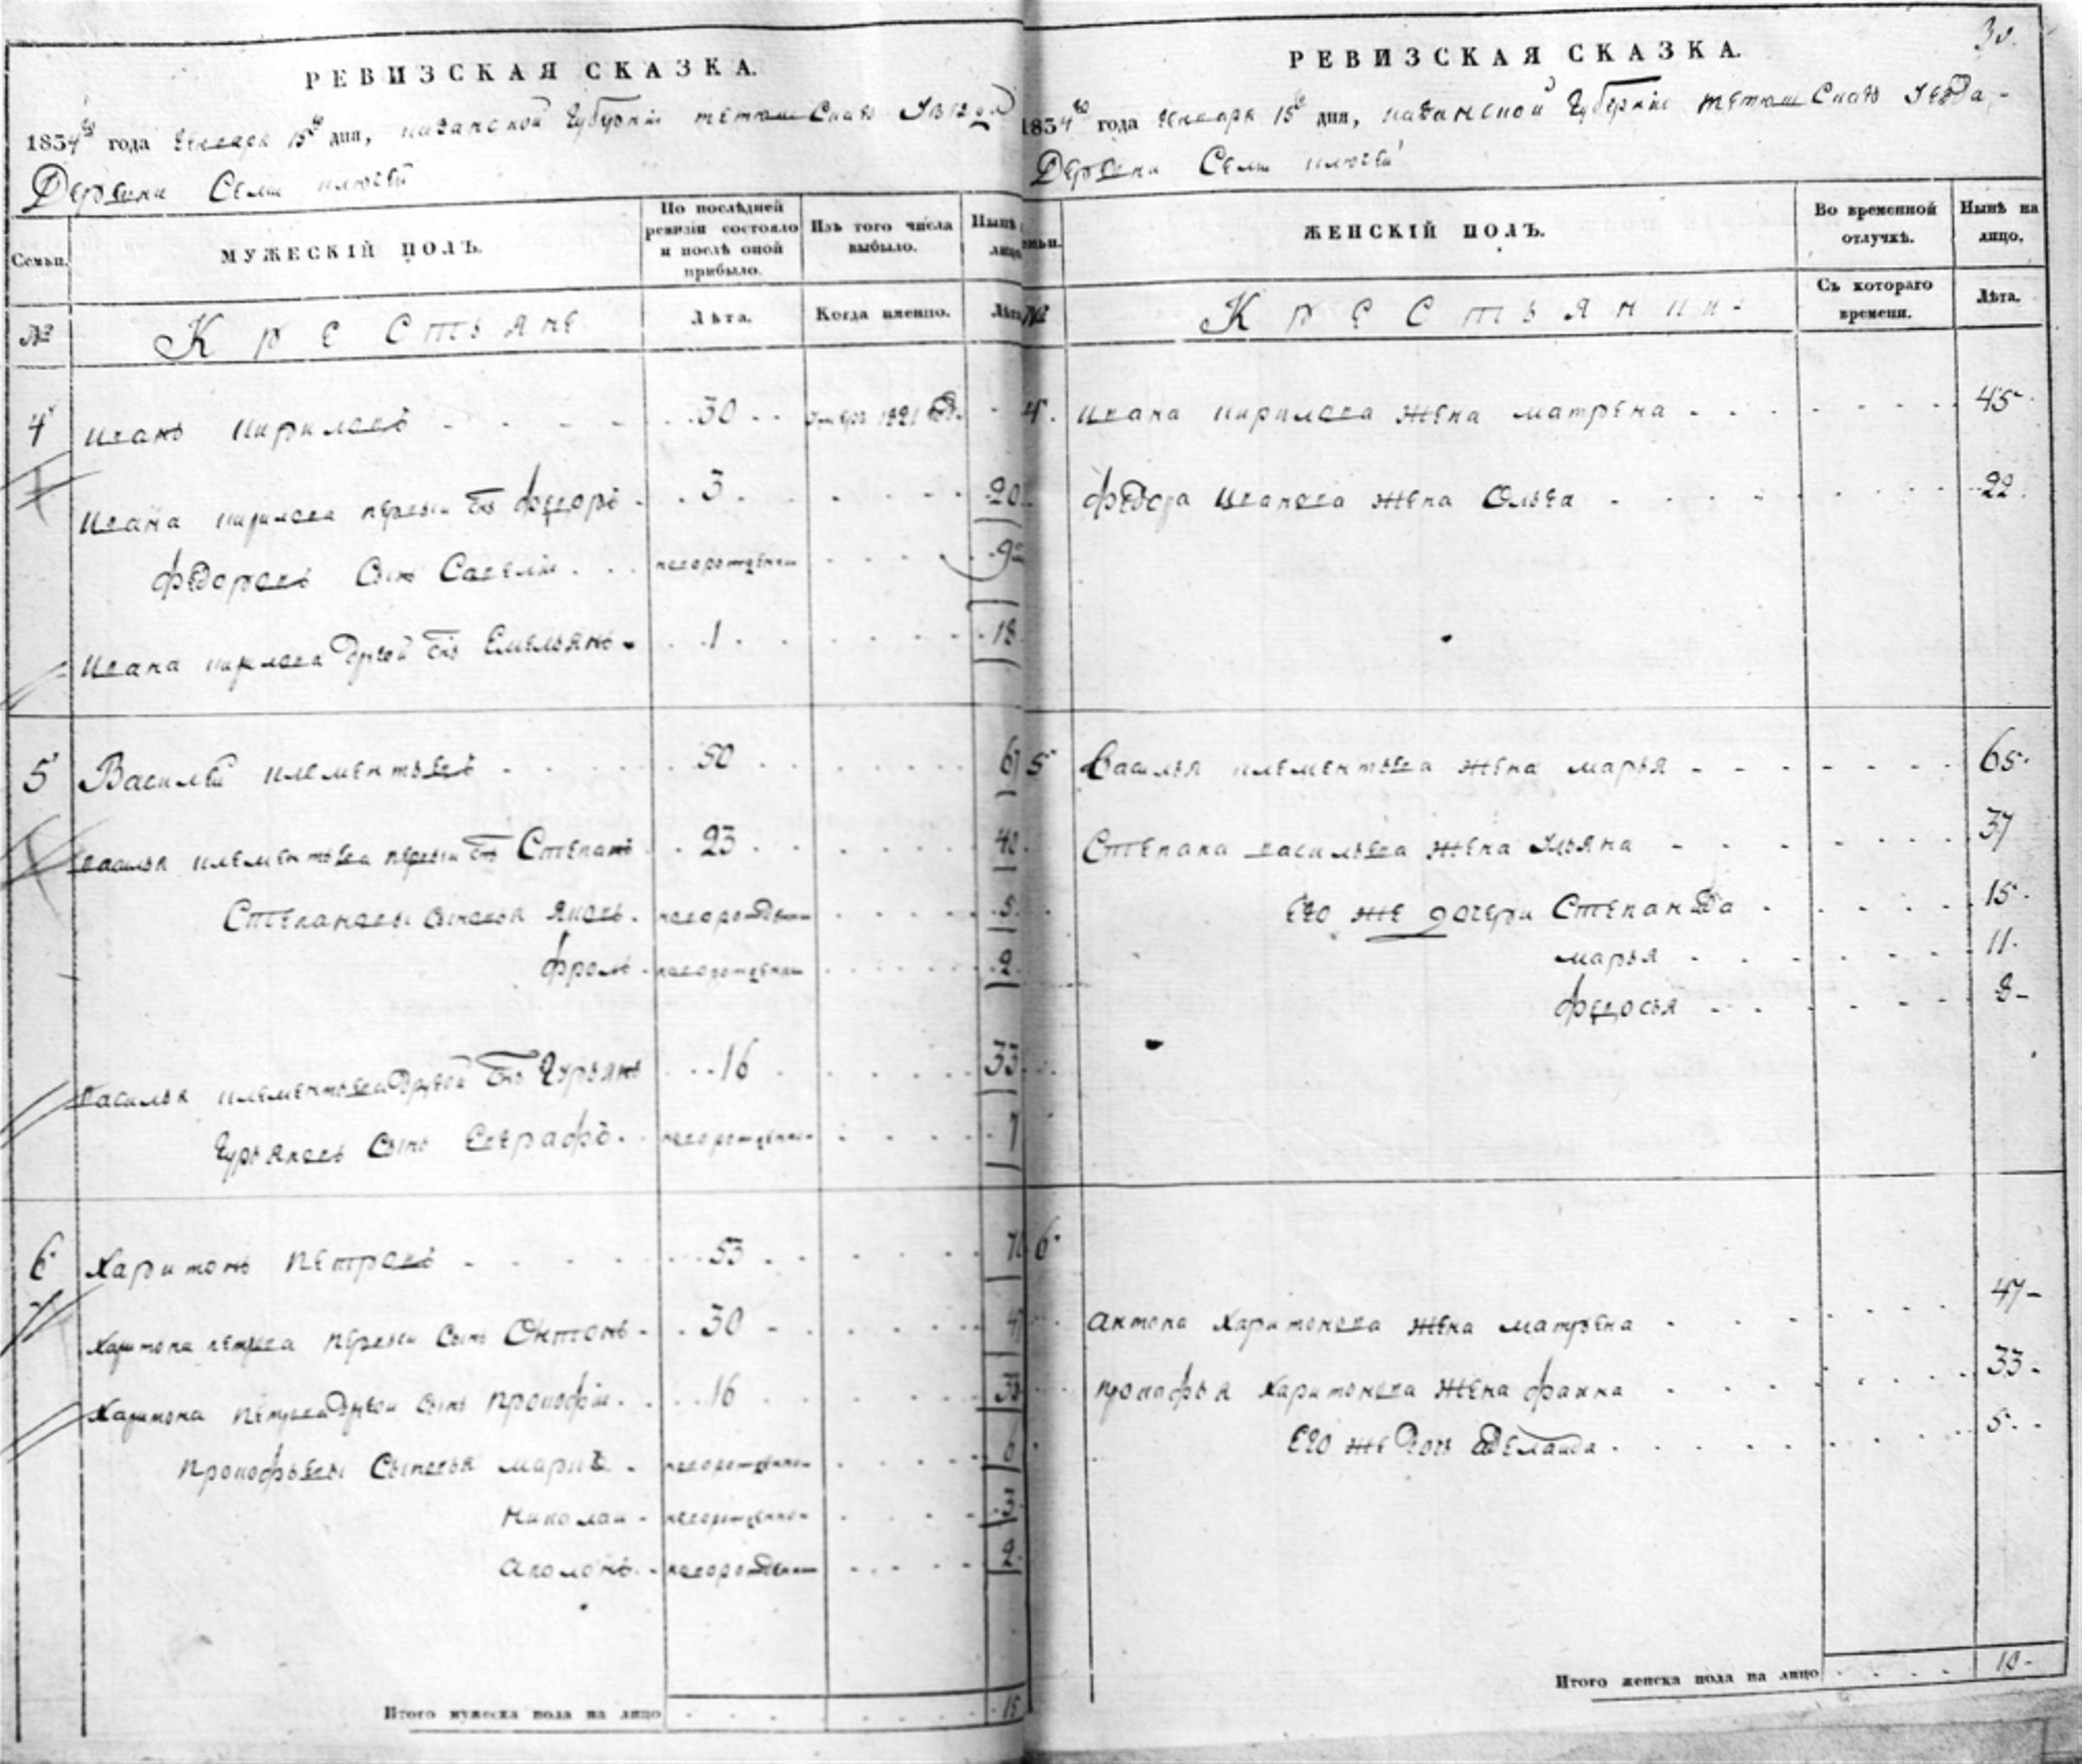 РЕВИЗСКАЯ СКАЗКА.
1834го года Декабря 15го дня, Казанской Губернiи тетюшскаго Уезда
Деревни Семи ключей
Семьи.
МУЖЕСКIЙ ПОЛЪ.
По послѣдней ревизiи состояло и послѣ оной прибыло.
Изъ того числа выбыло.
Нынѣ лицо
№
Крестьяне
Лѣта.
Когда именно.
Лѣта
4 иванъ кириловъ 30 умеръ 1821 год.
ивана кирилова первый снъ федоръ 3 20
федоровъ сынъ Савелiй новорожденны
ивана кирилова другой снъ Емельянъ 1 18
5 Василей клементьевъ 50 67
василья клементьева первый снъ Степанъ 23 40
Степановы сыновья яковъ новорожденны 5
фролъ новорожденны 2
василья клементьева другой снъ Гурьянъ 16 33
Гурьяновъ Сынъ Евграфъ новорожденны 7
6 Харитонъ Петровъ 53 70
Харитона петрова первый Сынъ Онтонъ 30 47
Харитона Петрова другой сынъ Прокофiй 16 33
Прокофьевы Сыновья маркъ новорожденны 6
николай новорожденны 3
аполонъ новорожденны 2
Итого мужеска пола на лицо 15
30.
РЕВИЗСКАЯ СКАЗКА.
1834го года Декабря 15го дня, казанской Губернiи тетюшскаго Уезда
Деревни Семи ключей
семьи.
ЖЕНСКIЙ ПОЛЪ.
Во временной отлучкѣ.
Нынѣ на лицо.
№
Крестьянки
Съ котораго времени.
Лѣта.
4. ивана кирилова жена матрена 45
федора иванова жена Ольга 22
5 василья клементьева жена марья 65
Степана васильева жена Ульяна 37
Его же дочери Степанида 15
марья 11
федосья 8
6
антона Харитонова жена матрена 47
прокофья Харитонова жена фаина 33
Его же дочь аделаида 5
Итого женска пола на лицо 10